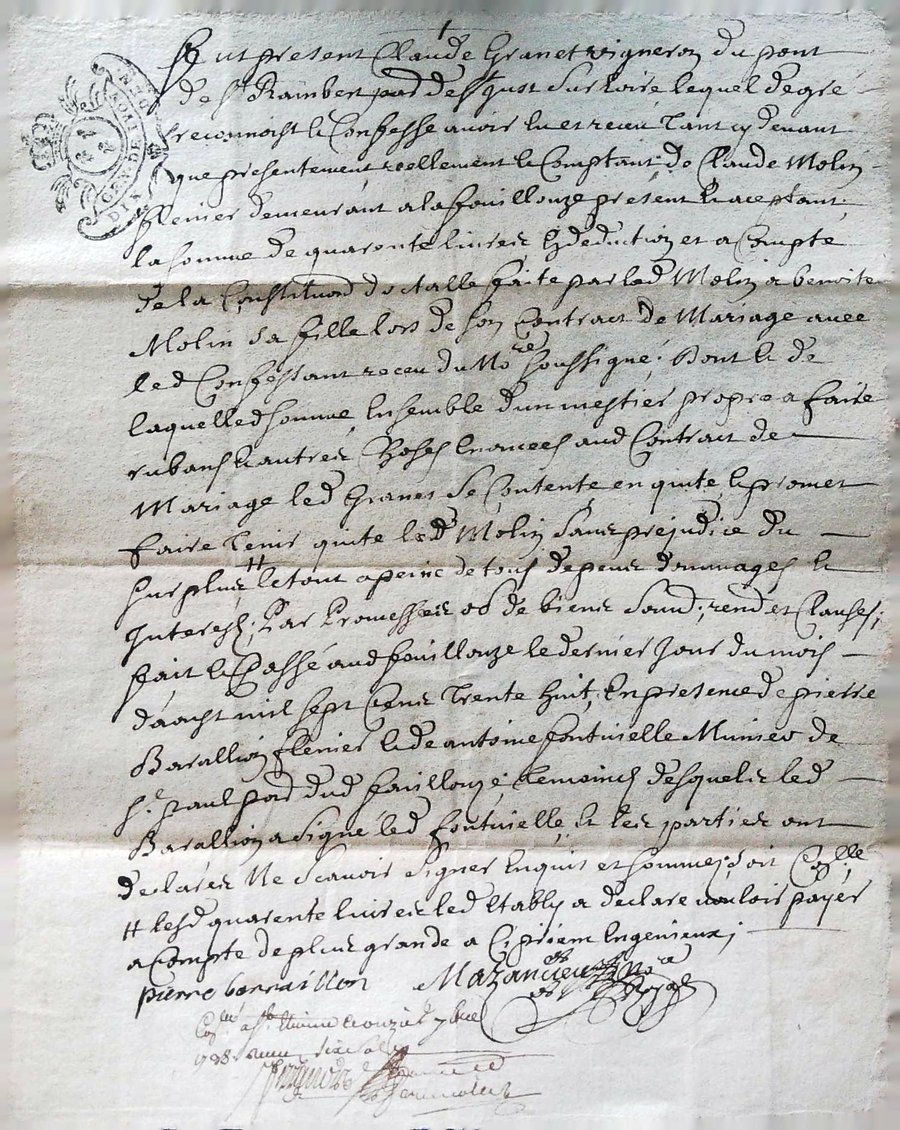 GEN DE LION
Fut present Claude Granet vigneron du pont
de St Rambert par de St Just Sur loire lequel de gre
reconnoist & Confesse avoir hu et receu Tant cy devant
que presentement, reellement & Comptant de Claude Molin
demeurant a la fouillouze present & aceptant,
la somme de quarante livres En deduction et a Compte
de la Constitution doctalle faite par led Molin a benoite
Molin sa fille lors de son Contract de Mariage avec
led Confessant receu du Nore soussigné; Dont & de
laquelle d somme, Ensemble d'un mestier propre a faire
rubans & autres Choses enoncees aud Contract de
Mariage led Granet Se Contente, en quite, & promet
faire Tenir quite led Molin Sans prejudice du
Surplus, # le tout a peine de tous depens dommages &
Interest; Par Promesses ob de biens Soumd; renō et Clauses;
fait & Passé aud fouillouze le dernier Jour du mois
d'aoust mil sept Cens Trente huit, En presence de pierre
Baraillion & de antoine fontvielle Munier de
St paul par dud fouillouze Temoins desquels led
Baraillion a Signé led fontvielle, & les parties ont
declarés Ne Scavoir Signer Enquis et sommes; soit Collle
# lesd quarente livres led Etably a declare vouloir payer
a Compte de plus grande a Cipriem Engenieux;
pierre barraillon Nore Royal
1738